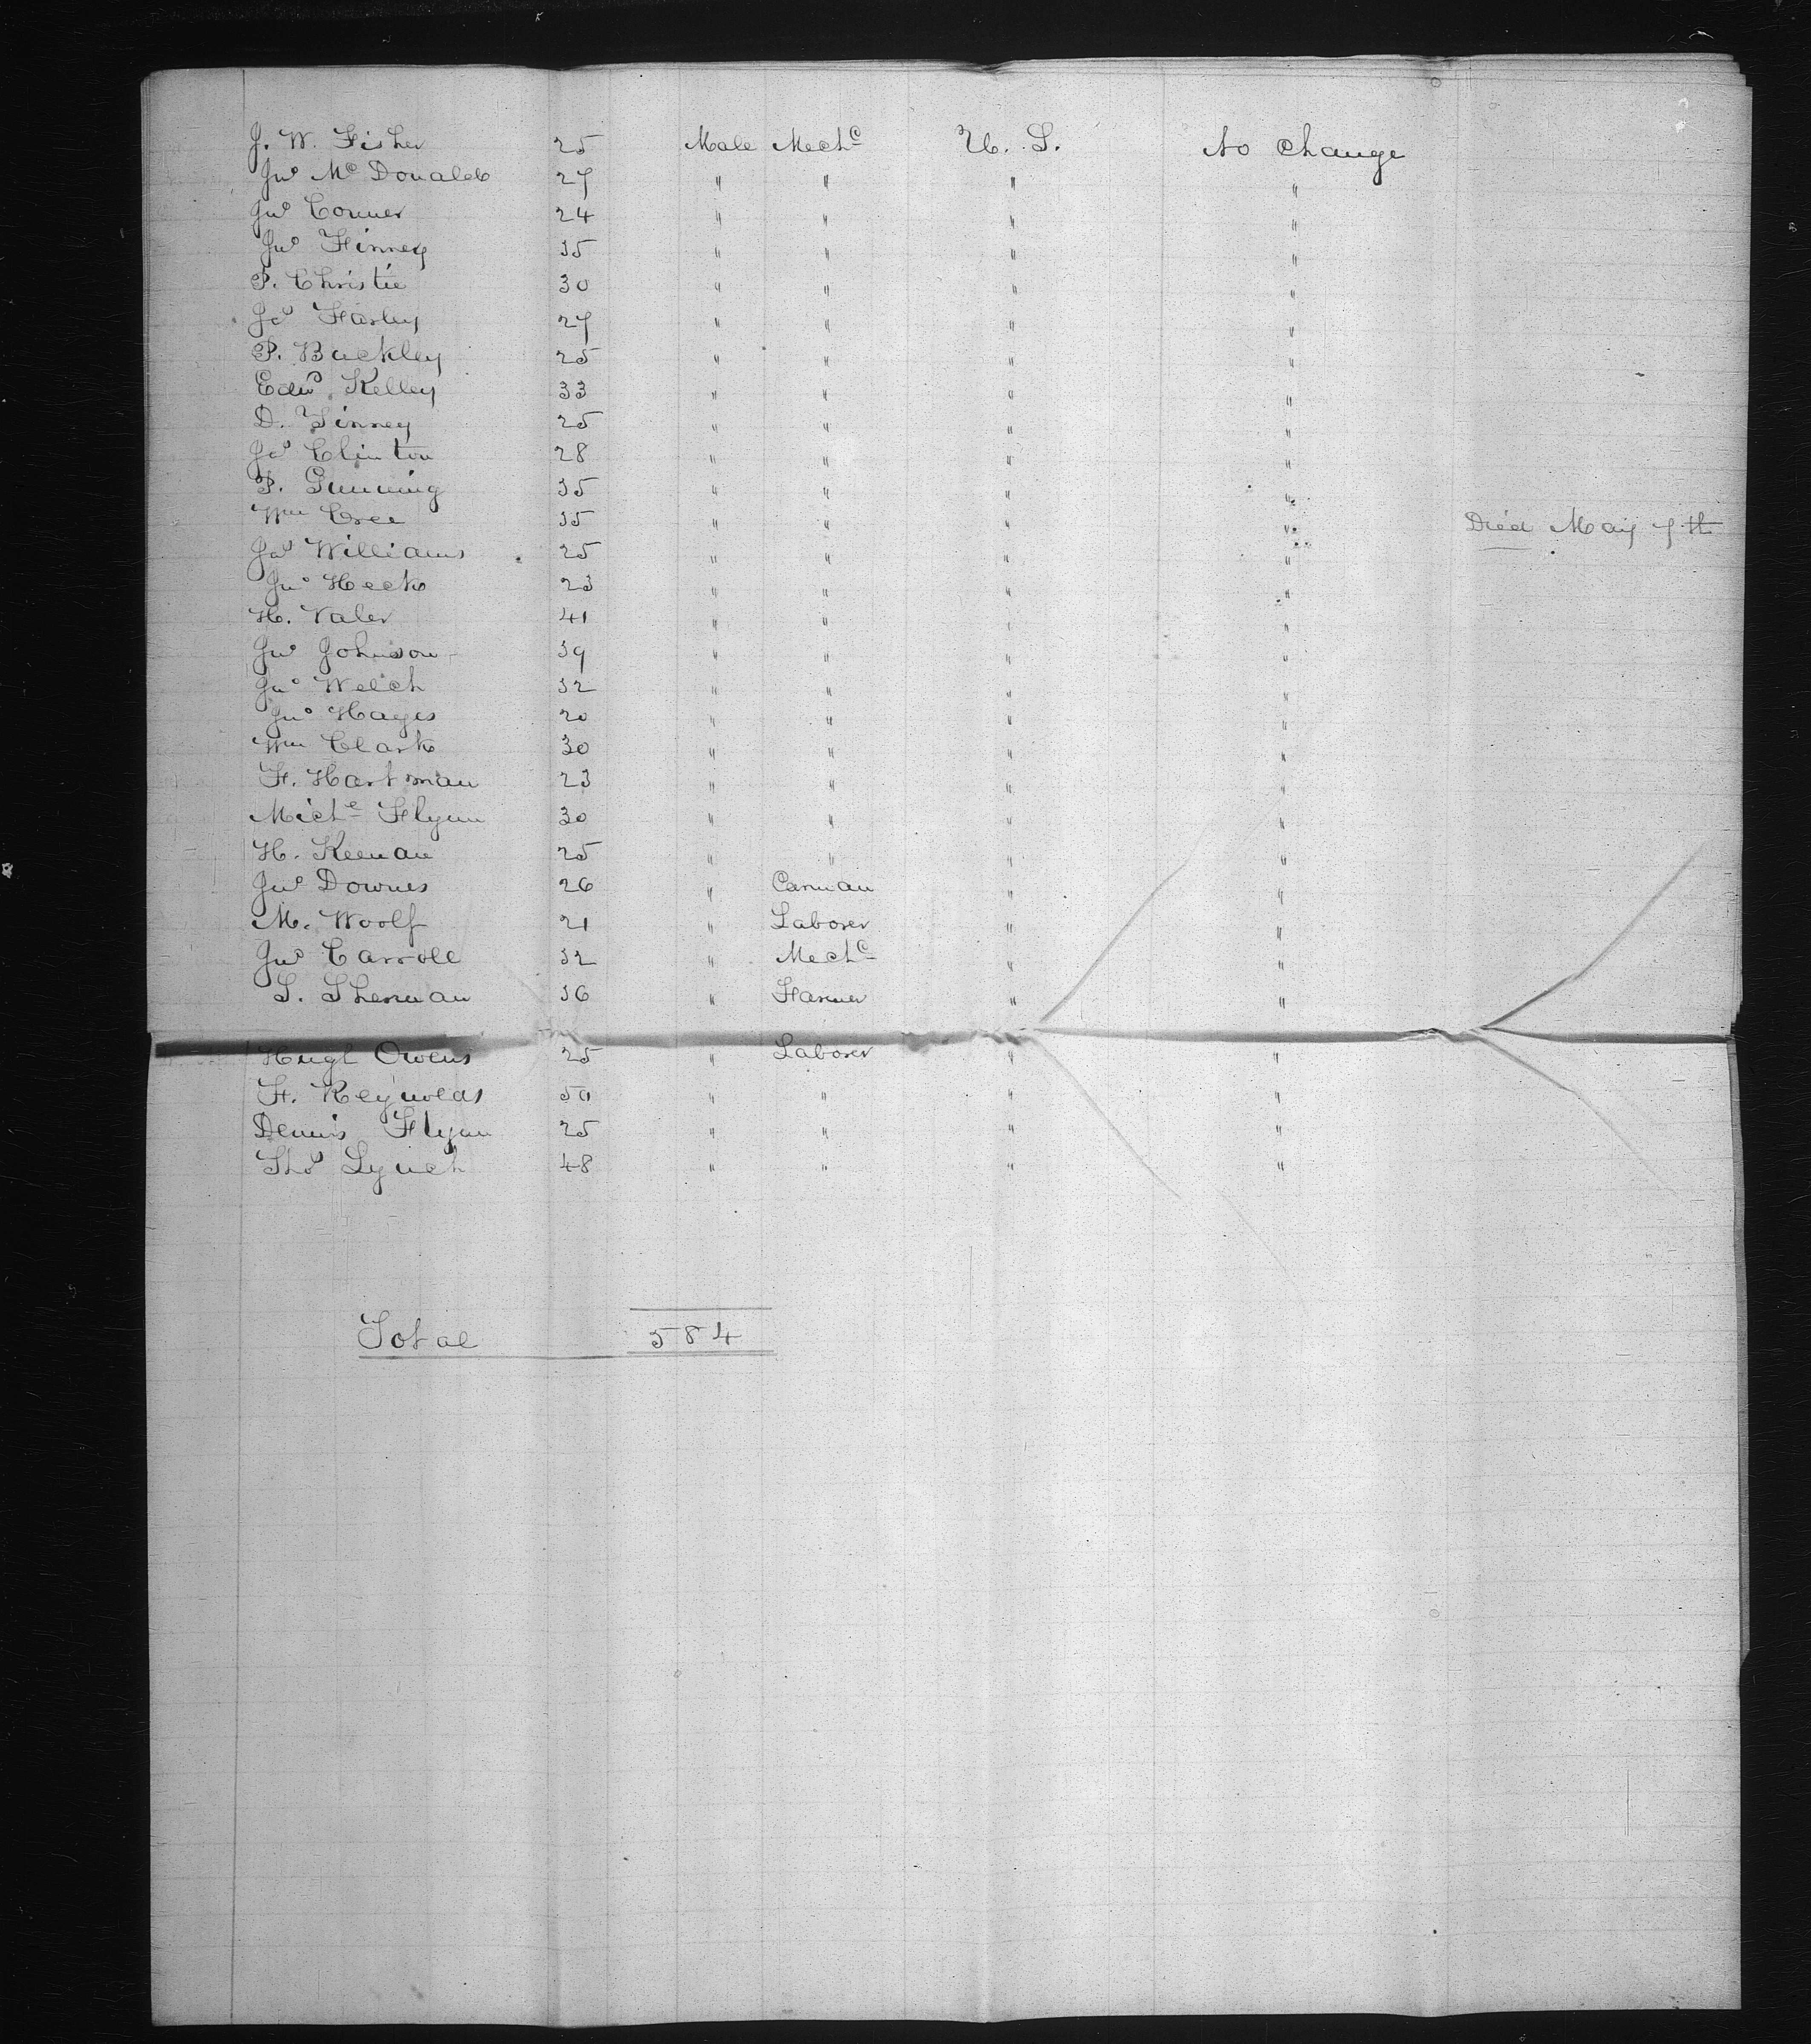 J. W. Fisher 25 Male Mechc U. S. No Change
Jno McDonald 27 " " " "
Jno Conner 24 " " " "
Jno Finney 35 " " " "
P. Christie 30 " " " "
Jas Farley 27 " " " "
P. Buckley 25 " " " "
Edwd Kelley 33 " " " "
D. Finney 25 " " " "
Jas Clinton 28 " " " "
P. Gunning 35 " " " "
Wm Cree 35 " " " " Died May 7th
Jas Williams 25 " " " "
Jno Heck 23 " " " "
H. Valer 41 " " " "
Jno Johnson 39 " " " "
Jno Welch 32 " " " "
Jno Hayes 20 " " " "
Wm Clark 30 " " " "
F. Hartman 23 " " " "
Miche Flynn 30 " " " "
H. Keenan 25 " " " "
Jno Downes 26 " Carman " "
M. Woolf 21 " Laborer " "
Jno Carroll 32 " Mechc " "
S. Sherman 36 " Farmer " "
Hugh Owens 25 " Laborer " "
F. Reynolds 50 " " " "
Dennis Flynn 25 " " " "
Thos Lynch 48 " " " "
Total 584